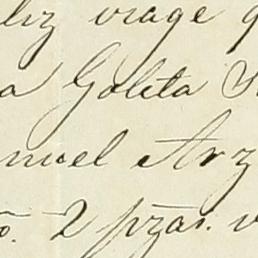 liz viage q
a Goleta S
nuel Arz
ño. 2 pzas. v